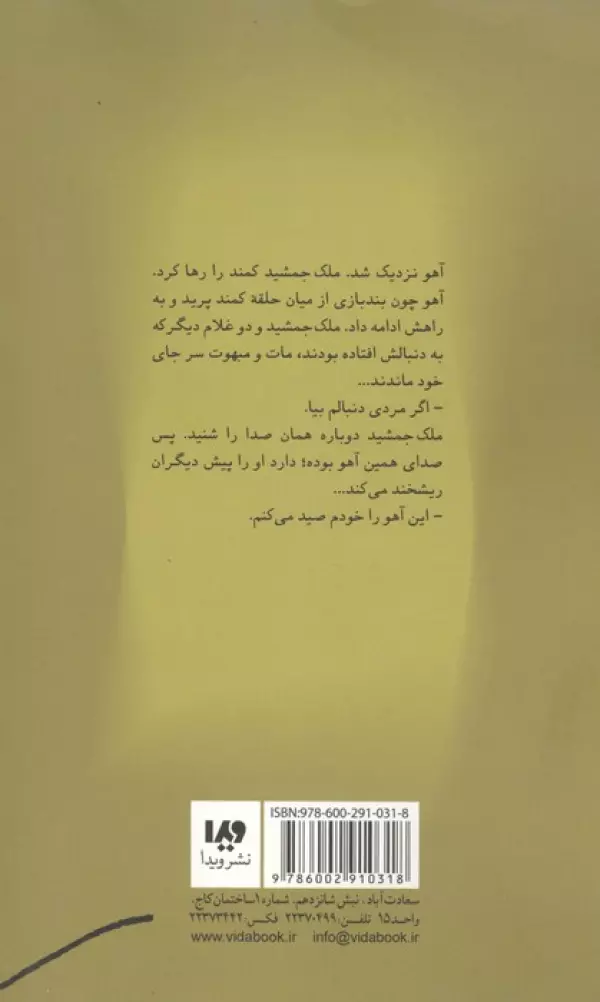 آهو نزدیک شد. ملک‌جمشید کمند را رها کرد.
آهو چون بندبازی از میان حلقهٔ کمند پرید و به
راهش ادامه داد. ملک‌جمشید و دو غلام دیگر که
به دنبالش افتاده بودند، مات و مبهوت سر جای
خود ماندند...
- اگر مردی دنبالم بیا.
ملک‌جمشید دوباره همان صدا را شنید. پس
صدای همین آهو بوده؛ دارد او را پیش دیگران
ریشخند می‌کند...
- این آهو را خودم صید می‌کنم.
ISBN:978-600-291-031-8
ویدا
نشر ویدا
9 786002 910318
سعادت آباد، نبش شانزدهم، شماره ۱ ساختمان کاج،
واحد ۱۵ تلفن: ۲۲۳۷۰۴۹۹ فکس: ۲۲۳۷۳۴۴۲
www.vidabook.ir info@vidabook.ir